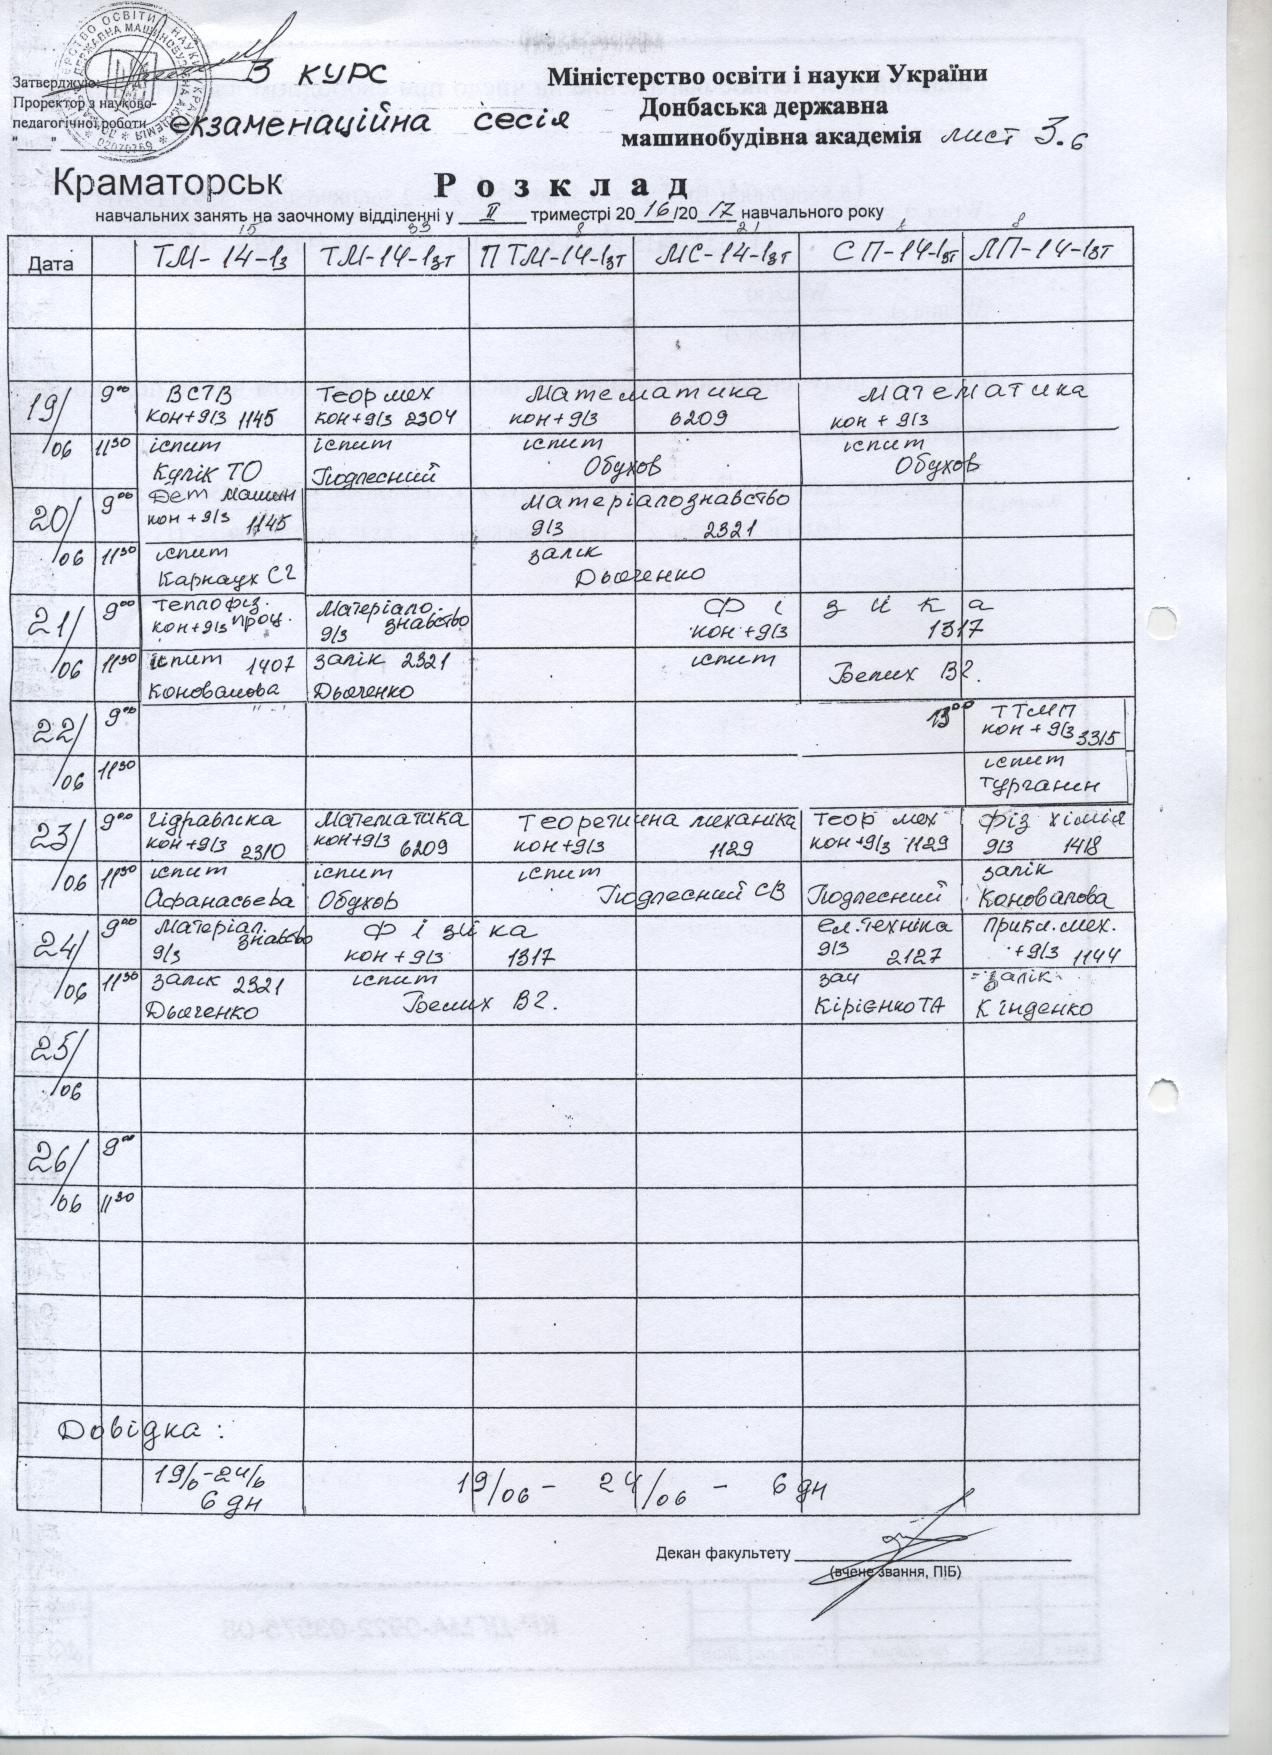 З КУРС
Міністерство освіти і науки України
Затверджую:
Проректор з науково-
Донбаська державна
педагогічної роботи
екзаменаційна сесія
машинобудівна академія лист 3.6
02070789
Краматорськ
Розклад
навчальних занять на заочному відділенні у II триместрі 2016/2017 навчального року
15 33 8 21 8
Дата ТМ-14-1з ТМ-14-1зт ПТМ-14-1зт МС-14-1зт СП-14-1зт ЛП-14-1зт
19/06 9⁰⁰ ВСТВ Теор мех Математика Математика
кон+д/з 1145 кон+д/з 2304 кон+д/з 6209 кон + д/з
11³⁰ іспит іспит іспит іспит
Кулік ТО Подлесний Обухов Обухов
20/06 9⁰⁰ Дет машин Матеріалознавство
кон + д/з 1145 д/з 2321
11³⁰ іспит залік
Карнаух СГ Дьяченко
21/06 9⁰⁰ Теплофіз. Матеріало- Фізика
кон+д/з проц. д/з знавство кон+д/з 1317
11³⁰ іспит 1407 залік 2321 іспит
Коновалова Дьяченко Белих ВГ.
22/06 9⁰⁰ 13⁰⁰ ТТМП
кон + д/з 3315
11³⁰ іспит
Турганін
23/06 9⁰⁰ Гідравліка Математика Теоретична механіка Теор мех Фіз хімія
кон+д/з 2310 кон+д/з 6209 кон+д/з 1129 кон+д/з 1129 д/з 1418
11³⁰ іспит іспит іспит залік
Афанасьева Обухов Подлесний СВ Подлесний Коновалова
24/06 9⁰⁰ Матеріал. Фізика Ел.техніка Прикл.мех.
д/з знавство кон + д/з 1317 д/з 2127 +д/з 1144
11³⁰ залік 2321 іспит зач залік
Дьяченко Белих ВГ. Кірієнко ТА Кінденко
25/06
26/06 9⁰⁰
11³⁰
Довідка:
19/6-24/6 19/06 - 24/06 - 6 дн
6 дн
Декан факультету
(вчене звання, ПІБ)